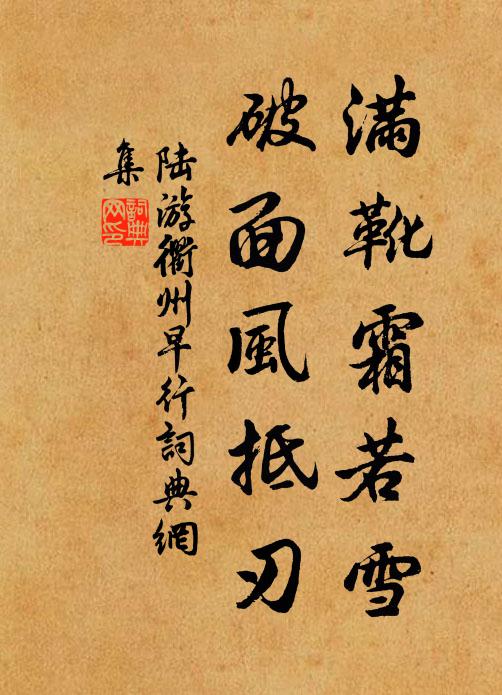 满靴霜若雪
破面風抵刃
陆游衢州早行詞典網
集
詞典网印